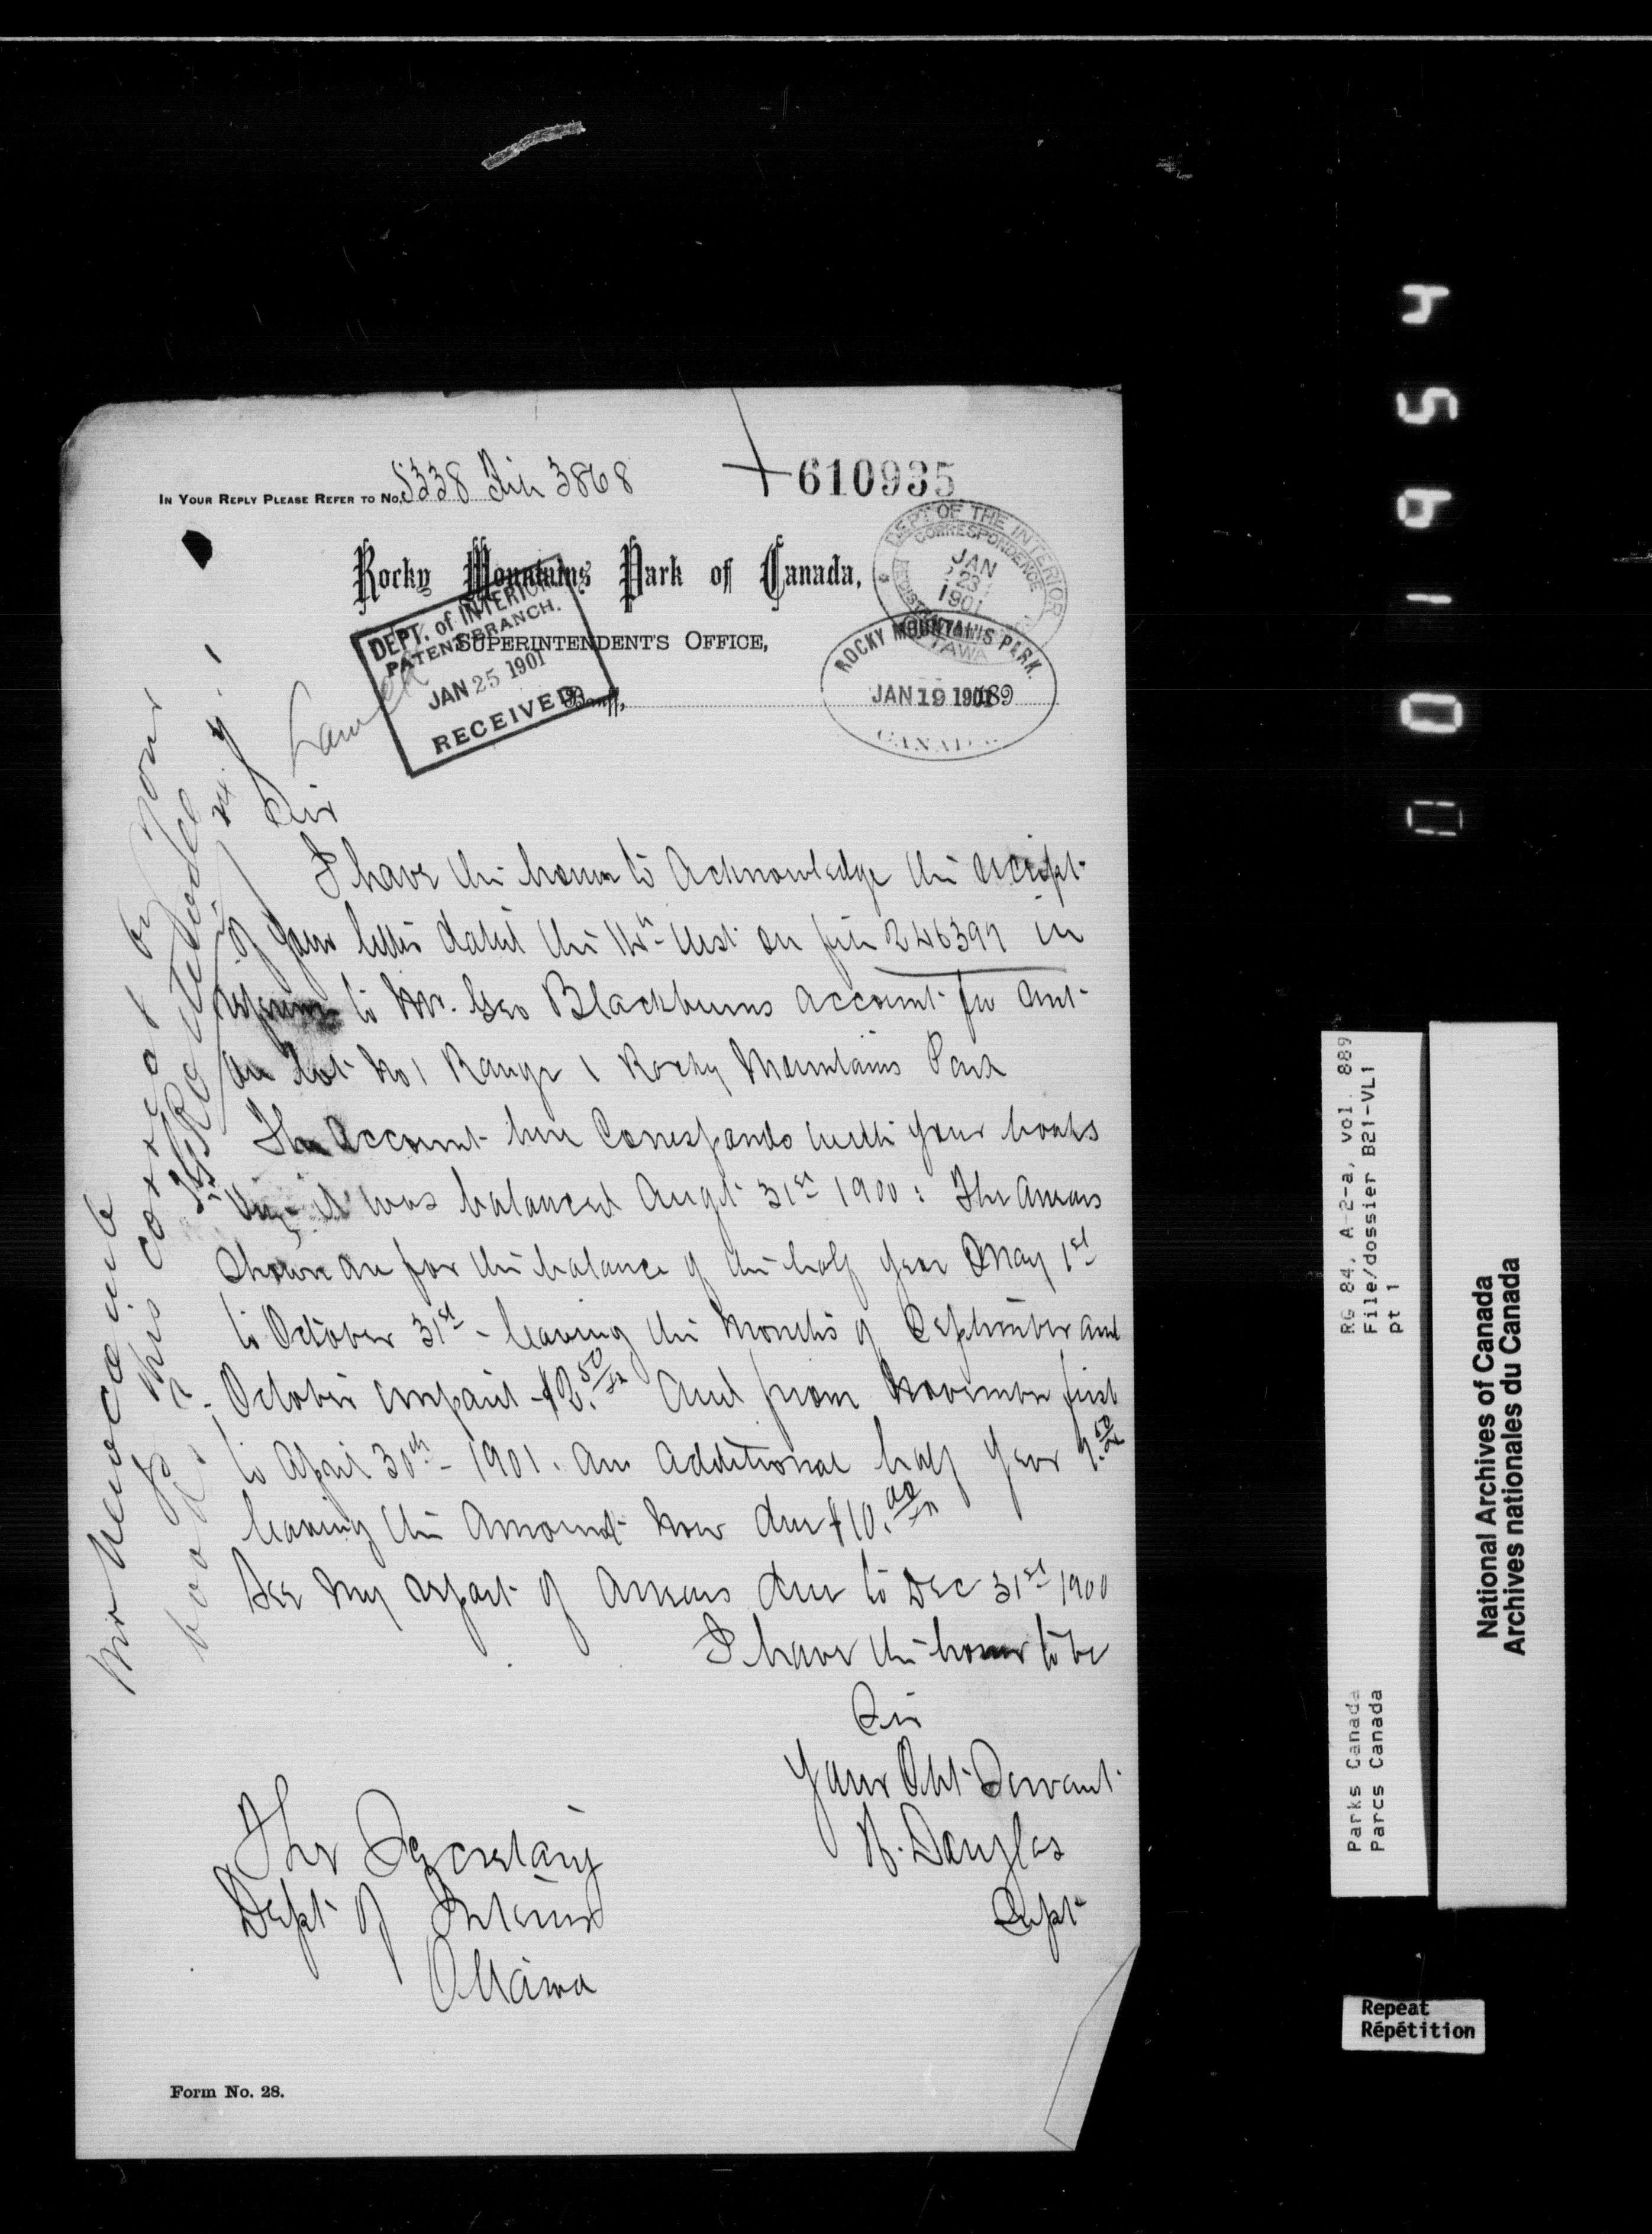 IN YOUR REPLY PLEASE REFER TO No. 5338 File 3868
610935
Rocky Mountains Park of Canada,
SUPERINTENDENT'S OFFICE,
Banff, 189
DEPT OF THE INTERIOR
CORRESPONDENCE
JAN 23 1901
DEPT. of INTERIOR
PATENT BRANCH.
JAN 25 1901
RECEIVED
ROCKY MOUNTAINS PARK.
JAN 19 1901
CANADA
Sir
I have the honor to acknowledge the receipt
of your letter dated the Inst on file 246397 in
reference to Mr. Geo Blackburns account for
on Lot No 1 Range 1 Rocky Mountains Park
The account here corresponds with your books
it was balanced Augt 31st 1900: The arrears
shown are for the balance of the half year May 1st
to October 31st - leaving the months of September and
October unpaid - $2.50 and from November first
to April 30th - 1901. an additional half year 7.50
leaving the amount now due $10.00
See my report of arrears due to Dec 31st 1900
I have the honor to be
Sir
Your Obt Servant
H. Douglas
Supt
The Secretary
Dept of Interior
Ottawa
Mr
Is this correct by your
books?
Form No. 28.
RG 84, A-2-a, vol. 889
File/dossier B21-VL1
pt 1
Parks Canada
Parcs Canada
National Archives of Canada
Archives nationales du Canada
Repeat
Répétition